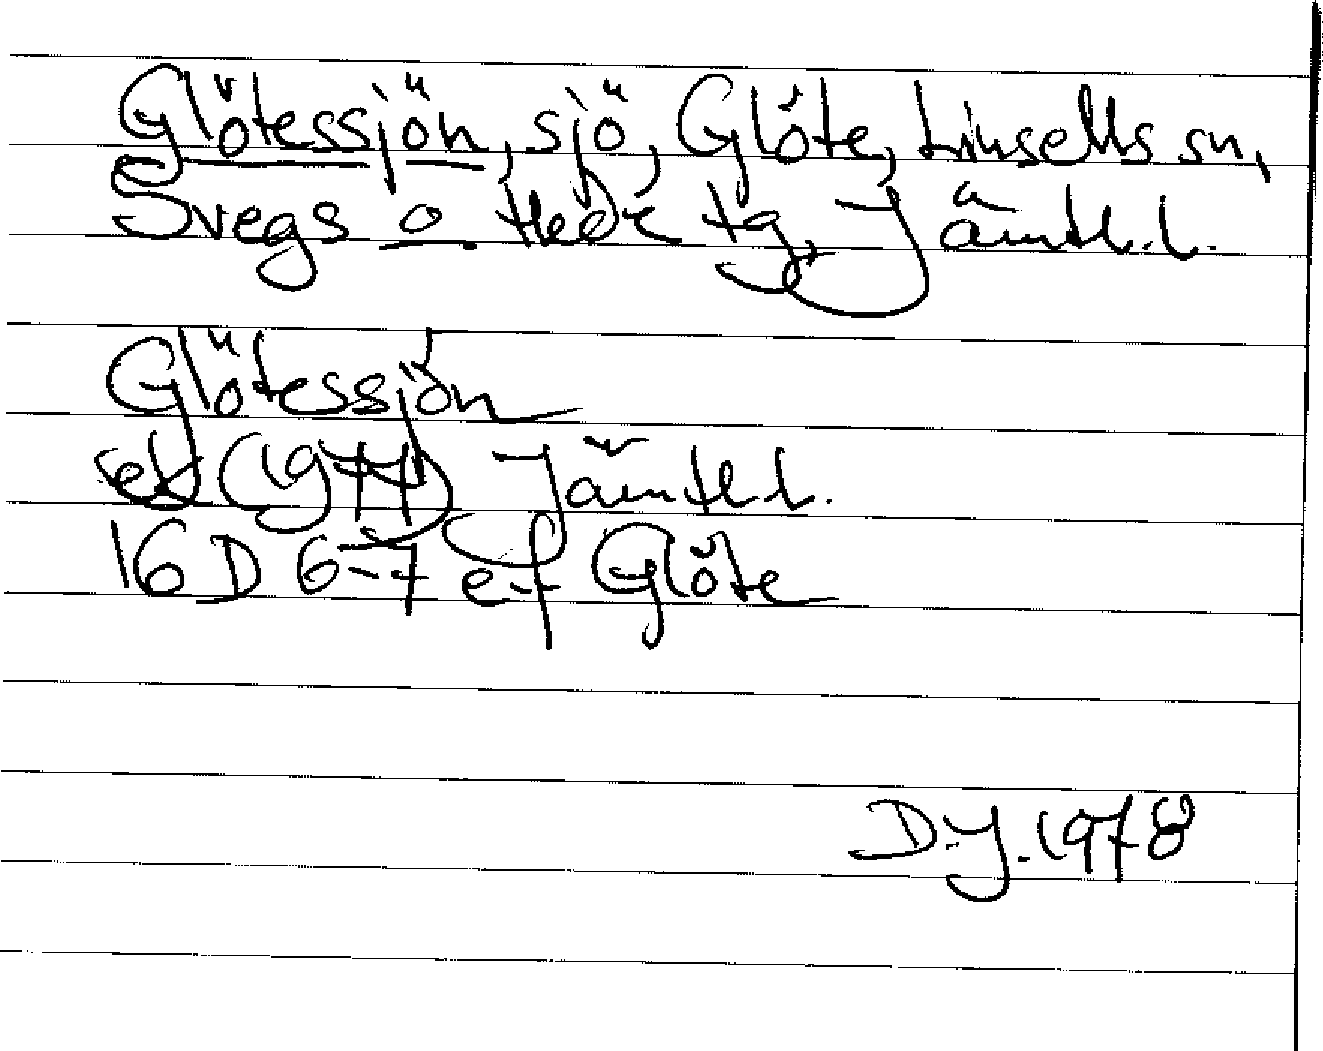 Glötessjön, sjö, Glöte, Linsells sn,
Svegs o Hede tg, Jämtl.l.
Glötessjön
ek (1977) Jämtl.l.
16 D 6-7 e-f Glöte
D.J. 1978